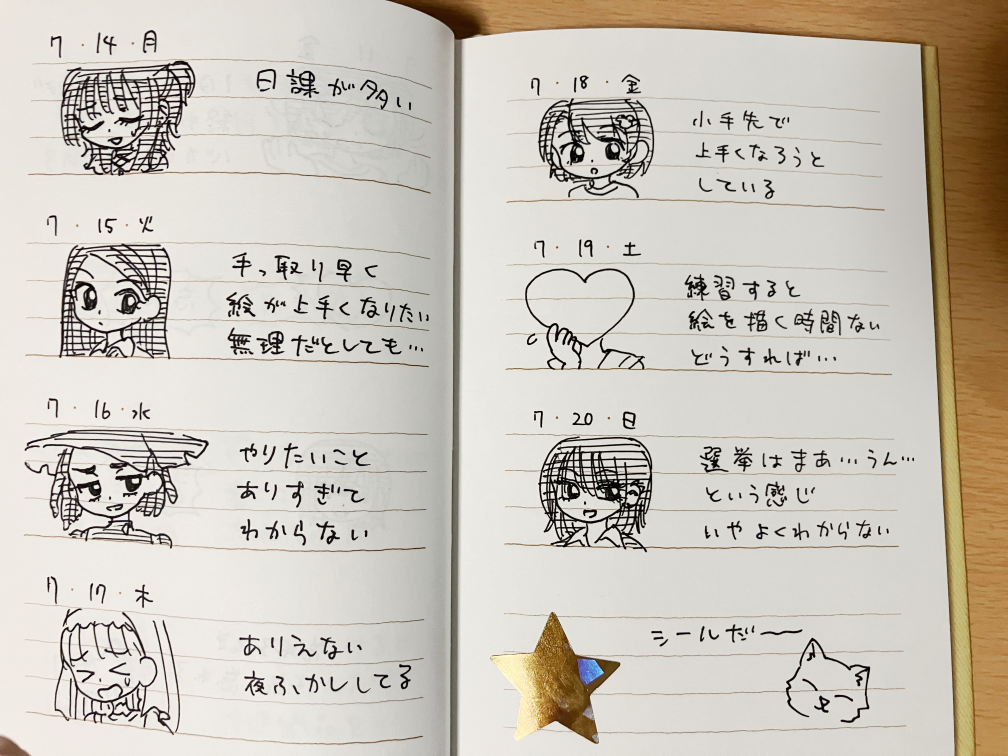 7・14・月
日課が多い
7・15・火
手っ取り早く
絵が上手くなりたい
無理だとしても…
7・16・水
やりたいこと
ありすぎて
わからない
7・17・木
ありえない
夜ふかししてる
7・18・金
小手先で
上手くなろうと
している
7・19・土
練習すると
絵を描く時間ない
どうすれば…
7・20・日
選挙はまあ…うん…
という感じ
いやよくわからない
シールだ〜